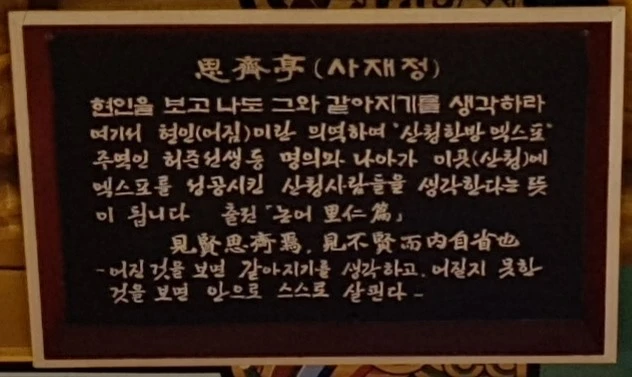 思齊亭(사재정)
현인을 보고 나도 그와 같아지기를 생각하라
여기서 현인(어짐)이란 의역하여 "산청한방 엑스포"
주역인 허준선생등 명의와 나아가 이곳(산청)에
엑스포를 성공시킨 산청사람들을 생각한다는 뜻
이 됩니다 출전「논어 里仁篇」
見賢思齊焉, 見不賢而内自省也
-어진것을 보면 같아지기를 생각하고, 어질지 못한
것을 보면 안으로 스스로 살핀다-